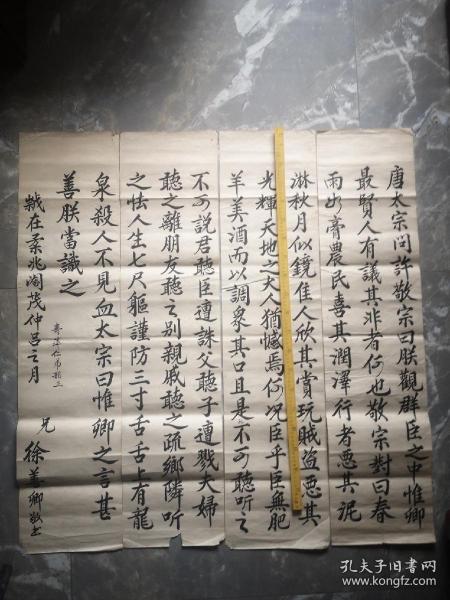 唐太宗问許敬宗曰朕觀群臣之中惟卿
最賢人有議其非者何也敬宗對曰春
雨如膏農民喜其潤澤行者惡其泥
淋秋月似鏡佳人欣其賞玩賊盗惡其
光輝天地之大人猶憾焉何况臣乎臣無肥
羊美酒而以調衆其口且是非不可聽听之
不可説君聽臣遭誅父聽子遭戮夫婦
聽之離朋友聽之别親戚聽之疏鄉隣听
之怯人生七尺軀謹防三寸舌舌上有龍
泉殺人不見血太宗曰惟卿之言甚
善朕當識之
兄 徐善卿敬书
孔夫子旧书网
www.kongfz.com